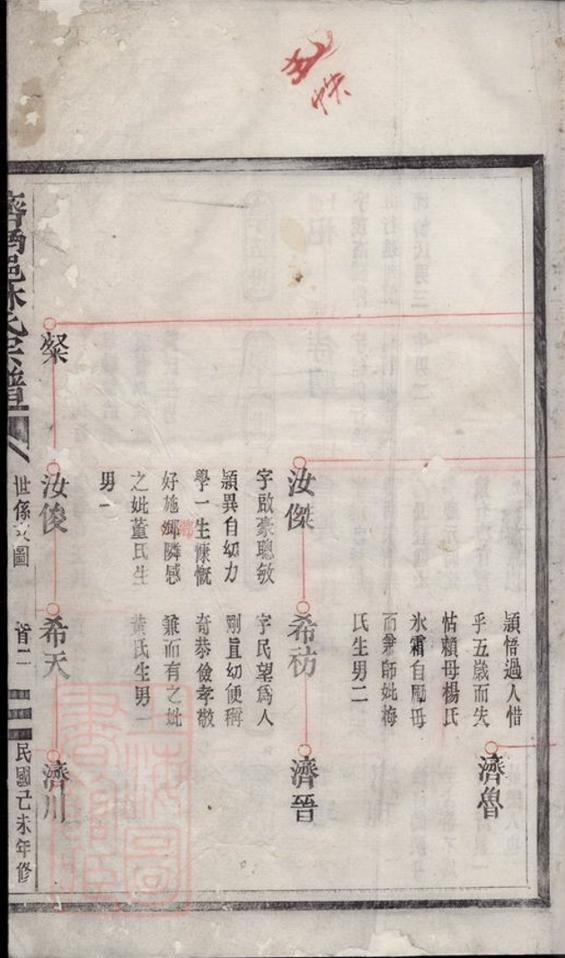 穎悟過人惜
乎五歲而失
怙賴母楊氏
氷霜自勵母
而兼師妣梅
氏生男二
濟魯
汝傑
字啟豪聰敏
穎異自幼力
學一生慷慨
好施鄉隣感
之妣董氏生
男一
希祊
字民望為人
剛直幼便稱
奇恭儉孝敬
兼而有之妣
黃氏生男一
濟晉
粲
汝俊
希天
濟川
氏宗譜
世係 圖
首二
民國己未年修